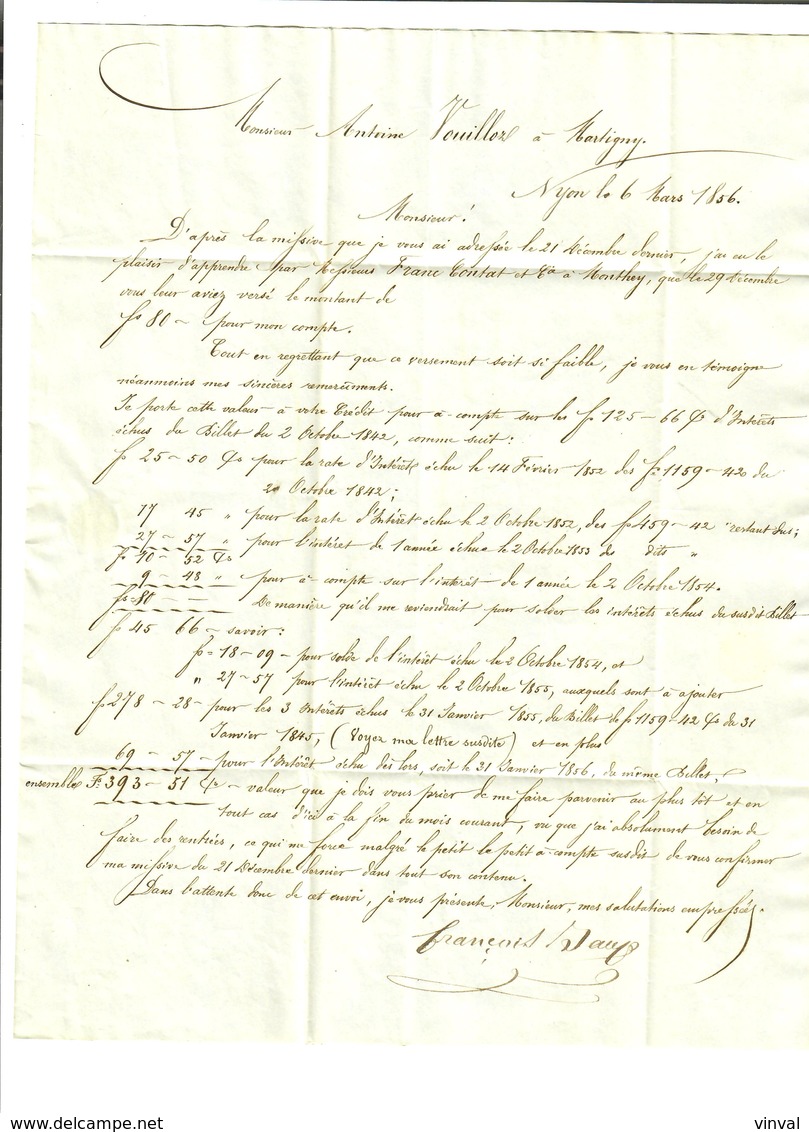 Monsieur Antoine Vouilloz à Martigny.
Nyon le 6 Mars 1856.
Monsieur!
D'après la missive que je vous ai adressée le 21 Décembre dernier, j'ai eu le
plaisir d'apprendre par Messieurs Franc Contat et Cie à Monthey, que le 29 Décembre
vous leur aviez versé le montant de
fs 80 ~ pour mon compte.
Tout en regrettant que ce versement soit si faible, je vous en témoigne
néanmoins mes sincères remercîments.
Je porte cette valeur à votre Crédit pour à-compte sur les fs 125-66 Cs d'Intérêts
échus du Billet du 2 Octobre 1842, comme suit:
fs 25 ~ 50 Cs pour la rate d'Intérêt échu le 14 Février 1852 des fs 1159-42 du
2 Octobre 1842;
17 45 " pour la rate d'Intérêt échu le 2 Octobre 1852, des fs 459-42 restant dus;
27 ~ 57 " pour l'intérêt de 1 année échue le 2 Octobre 1853 de dits "
fs 70 ~ 52 Cs
9 ~ 48 " pour à-compte sur l'intérêt de 1 année le 2 Octobre 1854.
fs 80 De manière qu'il me reviendrait pour solder les intérêts échus du susdit Billet
fs 45 66 ~ savoir:
fs 18-09 - pour solde de l'intérêt échu le 2 Octobre 1854, et
" 27-57 pour l'intérêt échu le 2 Octobre 1855, auxquels sont à ajouter
fs 278 - 28 - pour les 3 Intérêts échus le 31 Janvier 1855, du Billet de fs 1159-42 Cs du 31
Janvier 1845, (Voyez ma lettre susdite) et en plus
69 - 57 - pour l'Intérêt échu dès lors, soit le 31 Janvier 1856, du même Billet,
ensemble Fs 393-51 Cs - valeur que je dois vous prier de me faire parvenir au plus tôt et en
tout cas d'ici à la fin du mois courant, vu que j'ai absolument besoin de
faire des rentrées, ce qui me force malgré le petit le petit à-compte susdit de vous confirmer
ma missive du 21 Décembre dernier dans tout son contenu.
Dans l'attente donc de cet envoi, je vous présente, Monsieur, mes salutations empressées.
François
vinval